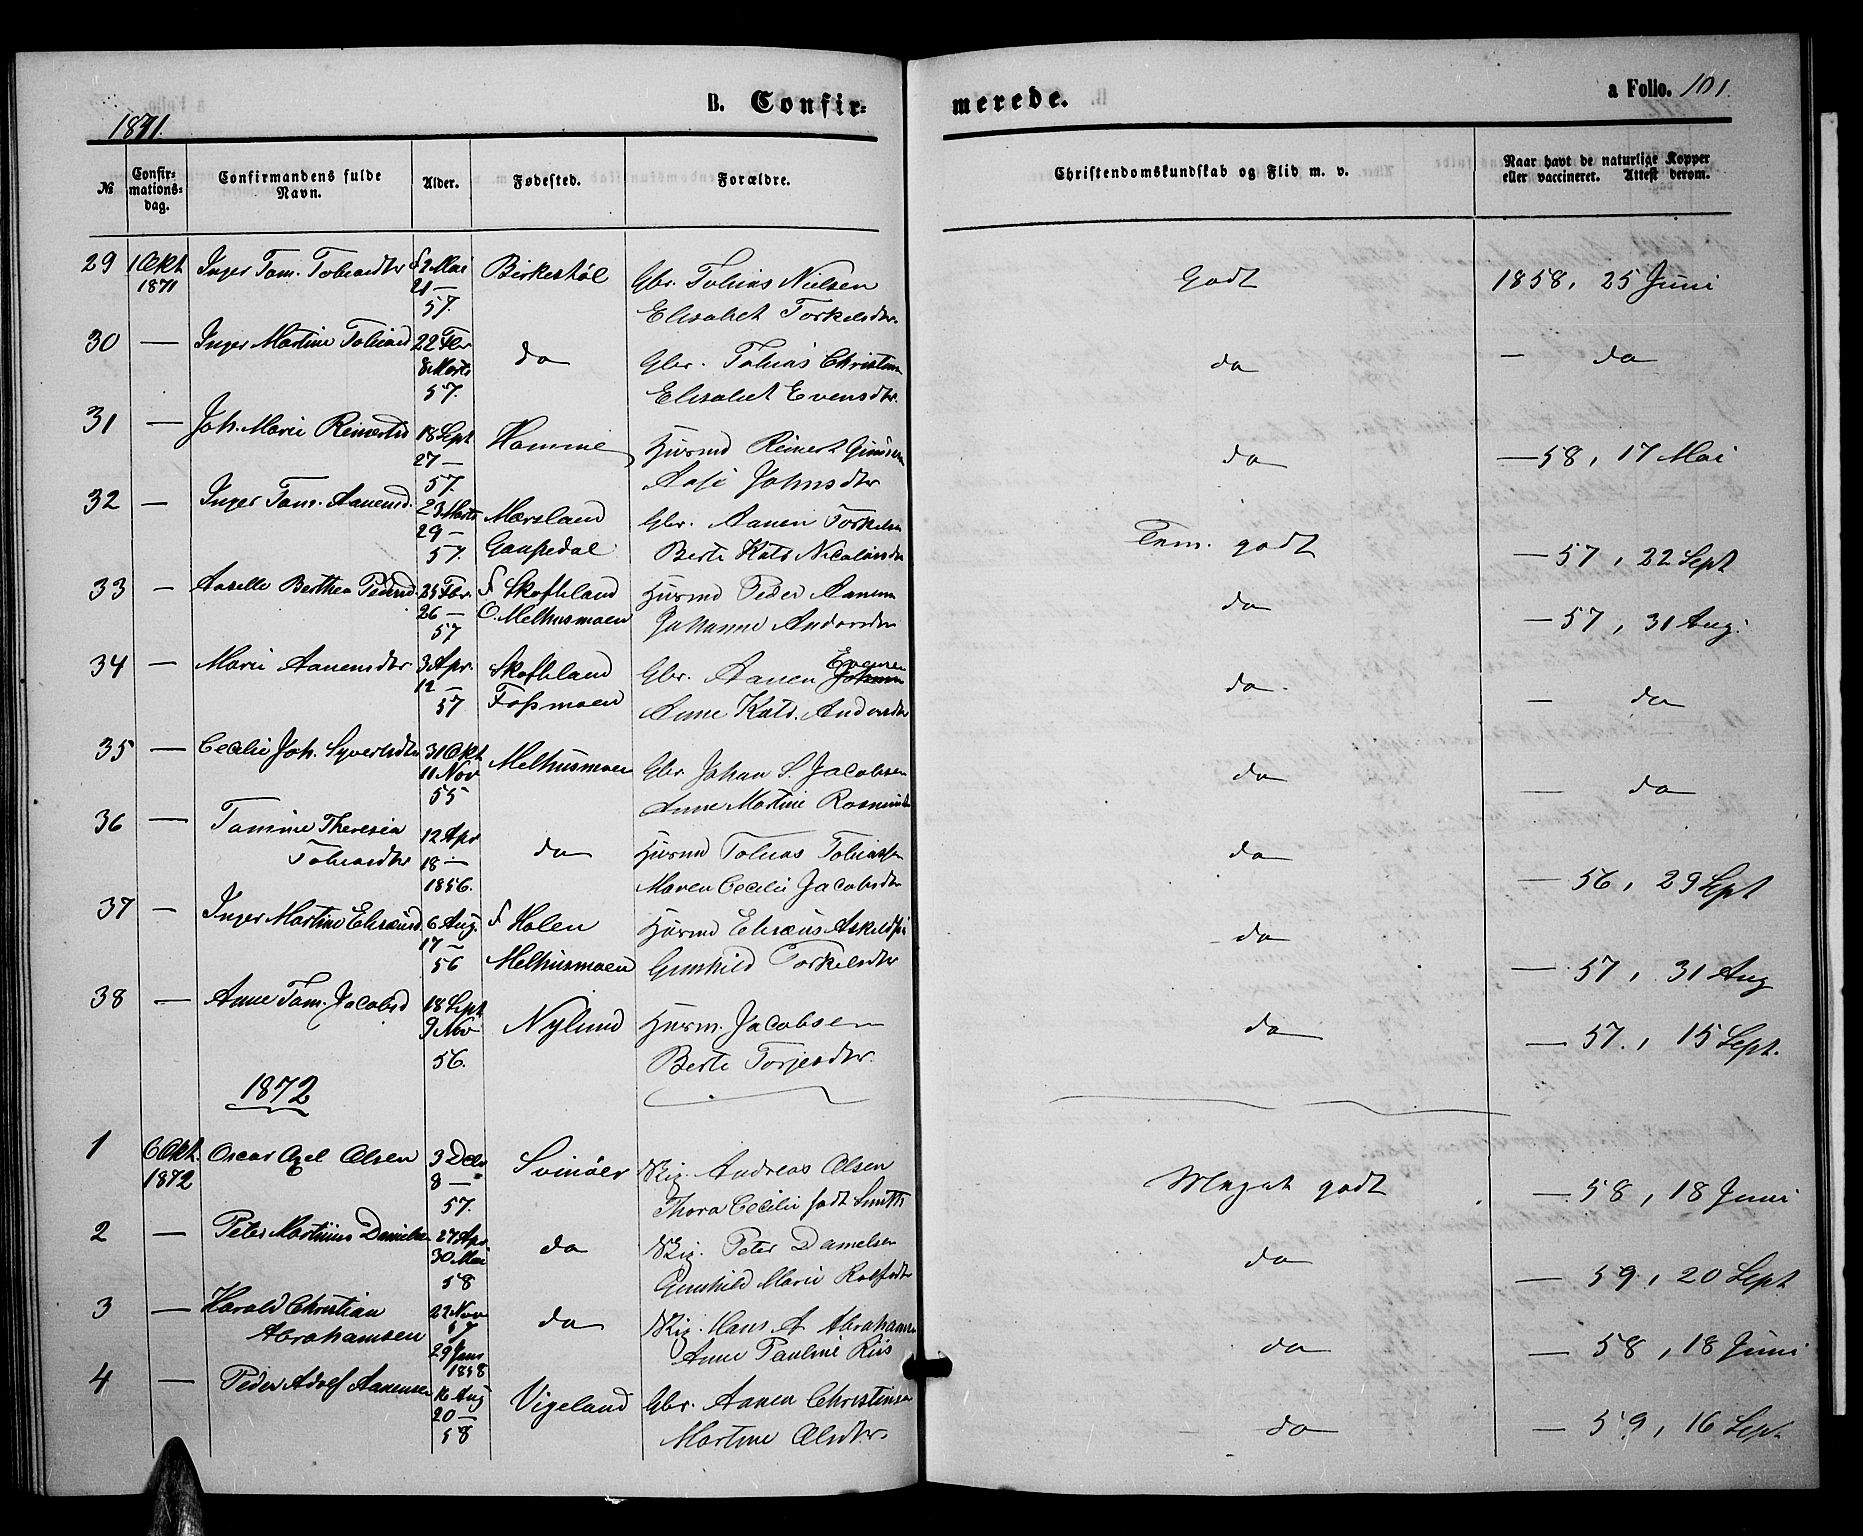 B. Confir-
merede.
a Folio. 101
1871.
№
Confir-
mations-
dag.
Confirmandens fulde
Navn.
Alder.
Fødested.
Forældre.
Christendomskundskab og Flid m. v.
Naar havt de naturlige Kopper
eller vaccineret. Attest derom.
29 1 Okt Inger Tom. Tobiasdtr f 2 Mai Birkestøl Gbr. Tobias Nielsen Godt 1858, 25 Juni
1871 21 —
57. Elisabet Torkelsdtr.
30 — Inger Martine Tobiasd 22 Fbr do Gbr. Tobias Christensen do — do
8 Marts
57. Elisabet Evensdtr.
31 — Joh. Marie Reinertsd 18 Sept Homme Husmd Reinert do — 58, 17 Mai
27 —
57. Aase Johnsdtr
32 — Inger Tom. Aanensd. 23 Marts Mersland Gbr. Aanen Torkelsen Tem. godt — 57, 22 Sept
29 —
57. Gaupedal Berte Kats Nicolaisdtr
33 — Aaselle Berthea Pedersd 25 Fbr. f Skofteland Husmd Peder Aanensen do — 57, 31 Aug.
26 — O. Melhusmoen
57 Johanne Andersdtr
34 — Marie Aanensdtr 3 Apr. Skofteland Gbr. Aanen Evensen do — do
12 —
57 Fossmoen Anne Kats. Andersdtr
35 — Cecilie Joh. Syvertsdtr 31 Okt Melhusmoen Gbr. Johan S. Jacobsen do — do
11 Nov
55 Anne Martine Rasmusdtr
36 — Tomine Theresia 12 Apr do Husmd Tobias Tobiassen do — 56, 29 Sept
Tobiasdtr 18 —
1856. Maren Cecilie Jacobsdtr
37 — Inger Martine Elisæusd 6 Aug. f Holen Husmd Elisæus Askeldsen do — 57, 31 Aug
17 —
56 Melhusmoen Gunhild Torkelsdtr
38 — Anne Tom. Jacobsd 18 Sept Nylund Husm. Jacobsen do — 57, 15 Sept.
9 Nov
56. Berte Torjesdtr.
1872
1 6 Okt. Oscar Axel Olsen 3 Debr Svinøer Skip. Andreas Olsen Meget godt — 58, 18 Juni
1872 8 —
57. Thora Cecilie født Smith
2 — Peter Martinius Danielsen 27 Apr do Skip. Peter Danielsen do — 59, 20 Sept
30 Mai
58 Gunhild Marie Rolfsdtr
3 — Harald Christian 22 Nov do Skip. Hans A Abrahamsen do — 58, 18 Juni
Abrahamsen 57
29 Janr
1858 Anne Pauline Riis
4 — Peder Adolf Aanensen 16 Aug Vigeland Gbr. Aanen Christensen do — 59, 16 Sept.
20 —
58 Martine Olsdtr.